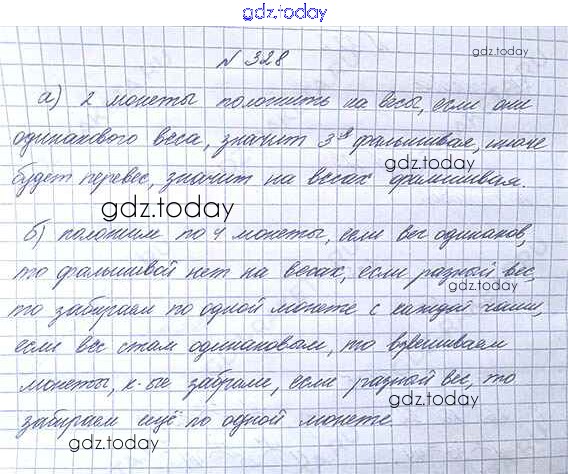 gdz.today
gdz.today
№ 328
а) 2 монеты положить на весы, если они
одинакового веса, значит 3я фальшивая, иначе
gdz.today
будет перевес, значит на весах фальшивая.
gdz.today
б) положим по 4 монеты, если вес одинаков,
то фальшивой нет на весах, если разный вес,
gdz.today
то забираем по одной монете с каждой чаши,
если вес стал одинаковым, то взвешиваем
монеты, к-ые забрали, если разный вес, то
забираем ещё по одной монете.
gdz.today
gdz.today